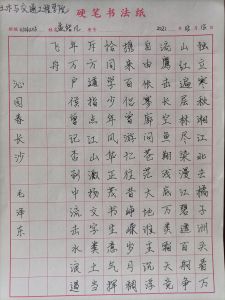 土木与交通工程学院
硬笔书法纸
独立寒秋湘江北去橘子洲头看万
山红遍层林尽染漫江碧透百舸争
流鹰击长空鱼翔浅底万类霜天竞
自由怅寥廓问苍茫大地谁主沉浮
携来百侣曾游忆往昔峥嵘岁月稠
恰同学少年风华正茂书生意气挥
斥方遒指点江山激扬文字粪土当
年万户侯曾记否到中流击水浪遏
飞舟
沁园春长沙 毛泽东